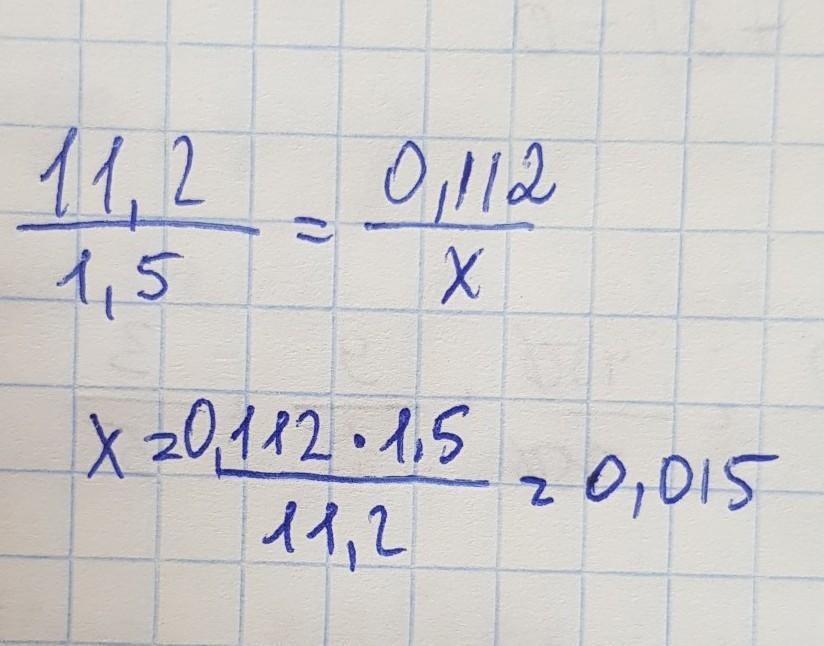 11,2 / 1,5 = 0,112 / x
x = 0,112 · 1,5 / 11,2 = 0,015